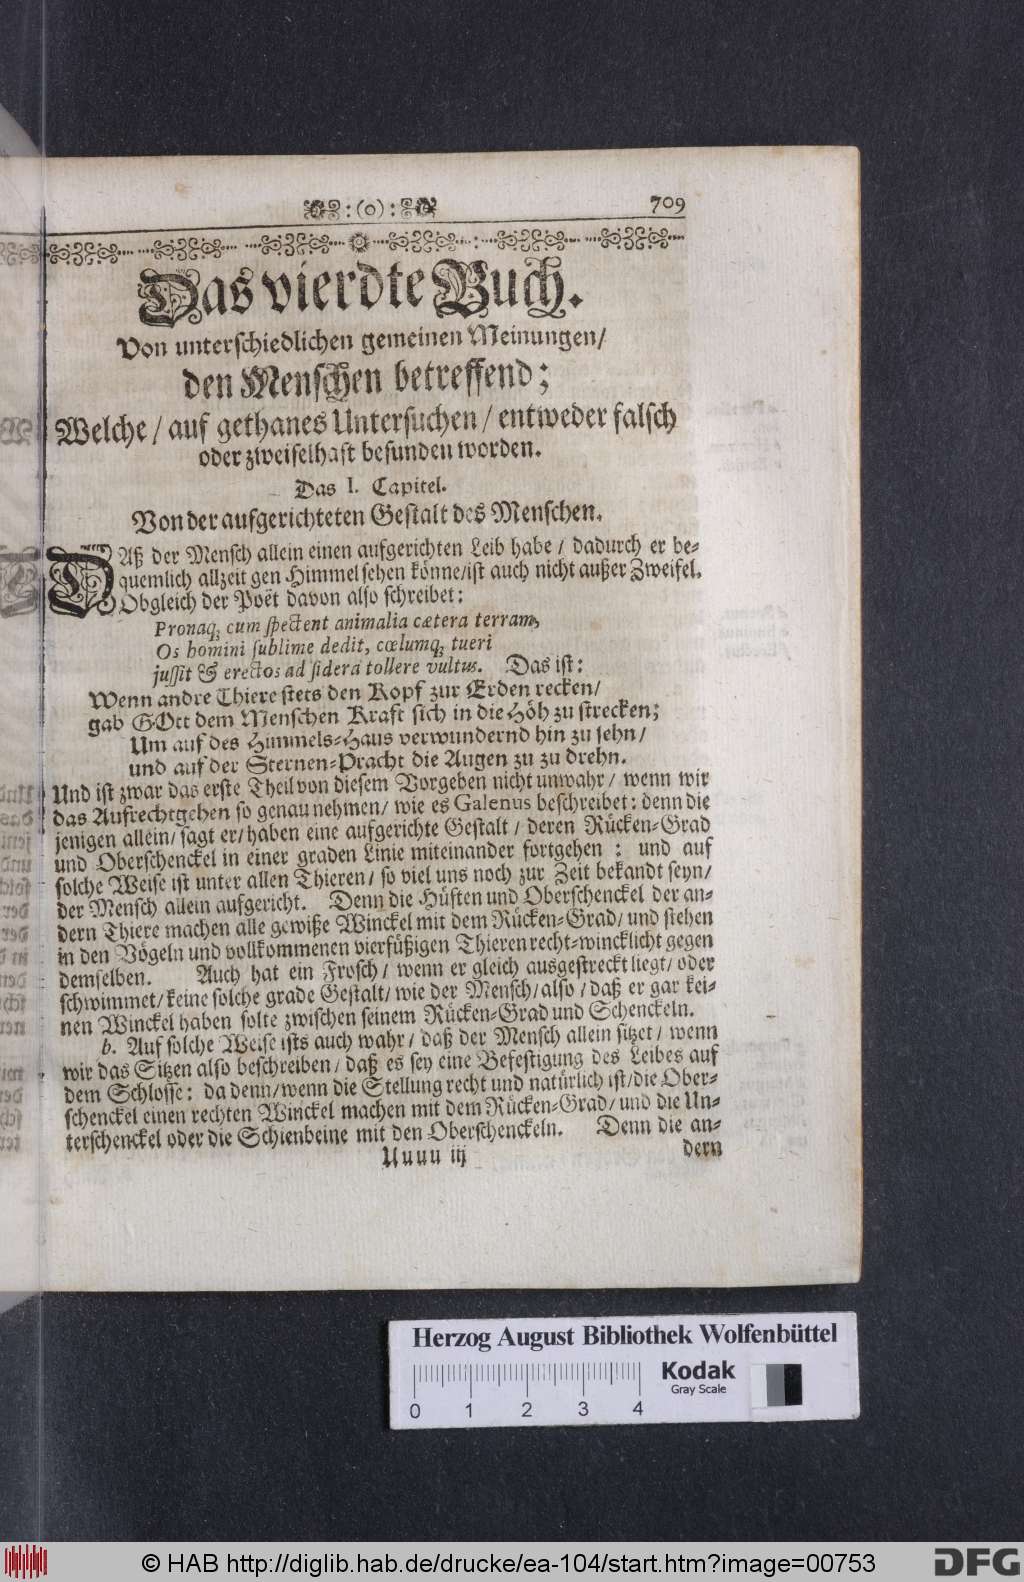 :(0): 709
Das vierdte Buch.
Von unterschiedlichen gemeinen Meinungen/
den Menschen betreffend;
Welche/ auf gethanes Untersuchen/ entweder falsch
oder zweifelhaft befunden worden.
Das I. Capitel.
Von der aufgerichteten Gestalt des Menschen.
DAß der Mensch allein einen aufgerichten Leib habe/ dadurch er be-
quemlich allzeit gen Himmel sehen könne/ ist auch nicht außer Zweifel.
Obgleich der Poët davon also schreibet:
Pronaq; cum spectent animalia cætera terram,
Os homini sublime dedit, cœlumq; tueri
jussit & erectos ad sidera tollere vultus. Das ist:
Wenn andre Thiere stets den Kopf zur Erden recken/
gab GOtt dem Menschen Kraft sich in die Höh zu strecken;
Um auf des Himmels-Haus verwundernd hin zu sehn/
und auf der Sternen-Pracht die Augen zu zu drehn.
Und ist zwar das erste Theil von diesem Vorgeben nicht unwahr/ wenn wir
das Aufrechtgehen so genau nehmen/ wie es Galenus beschreibet: denn die
jenigen allein/ sagt er/ haben eine aufgerichte Gestalt/ deren Rücken-Grad
und Oberschenckel in einer graden Linie miteinander fortgehen: und auf
solche Weise ist unter allen Thieren/ so viel uns noch zur Zeit bekandt seyn/
der Mensch allein aufgericht. Denn die Hüften und Oberschenckel der an-
dern Thiere machen alle gewiße Winckel mit dem Rücken-Grad/ und stehen
in den Vögeln und vollkommenen vierfüßigen Thieren recht-wincklicht gegen
demselben. Auch hat ein Frosch/ wenn er gleich ausgestreckt liegt/ oder
schwimmet/ keine solche grade Gestalt/ wie der Mensch/ also/ daß er gar kei-
nen Winckel haben solte zwischen seinem Rücken-Grad und Schenckeln.
b. Auf solche Weise ists auch wahr/ daß der Mensch allein sitzet/ wenn
wir das Sitzen also beschreiben/ daß es sey eine Befestigung des Leibes auf
dem Schlosse: da denn/ wenn die Stellung recht und natürlich ist/ die Ober-
schenckel einen rechten Winckel machen mit dem Rücken-Grad/ und die Un-
terschenckel oder die Schienbeine mit den Oberschenckeln. Denn die an-
Uuuu iij dern
Herzog August Bibliothek Wolfenbüttel
Kodak
Gray Scale
0 1 2 3 4
© HAB http://diglib.hab.de/drucke/ea-104/start.htm?image=00753
DFG